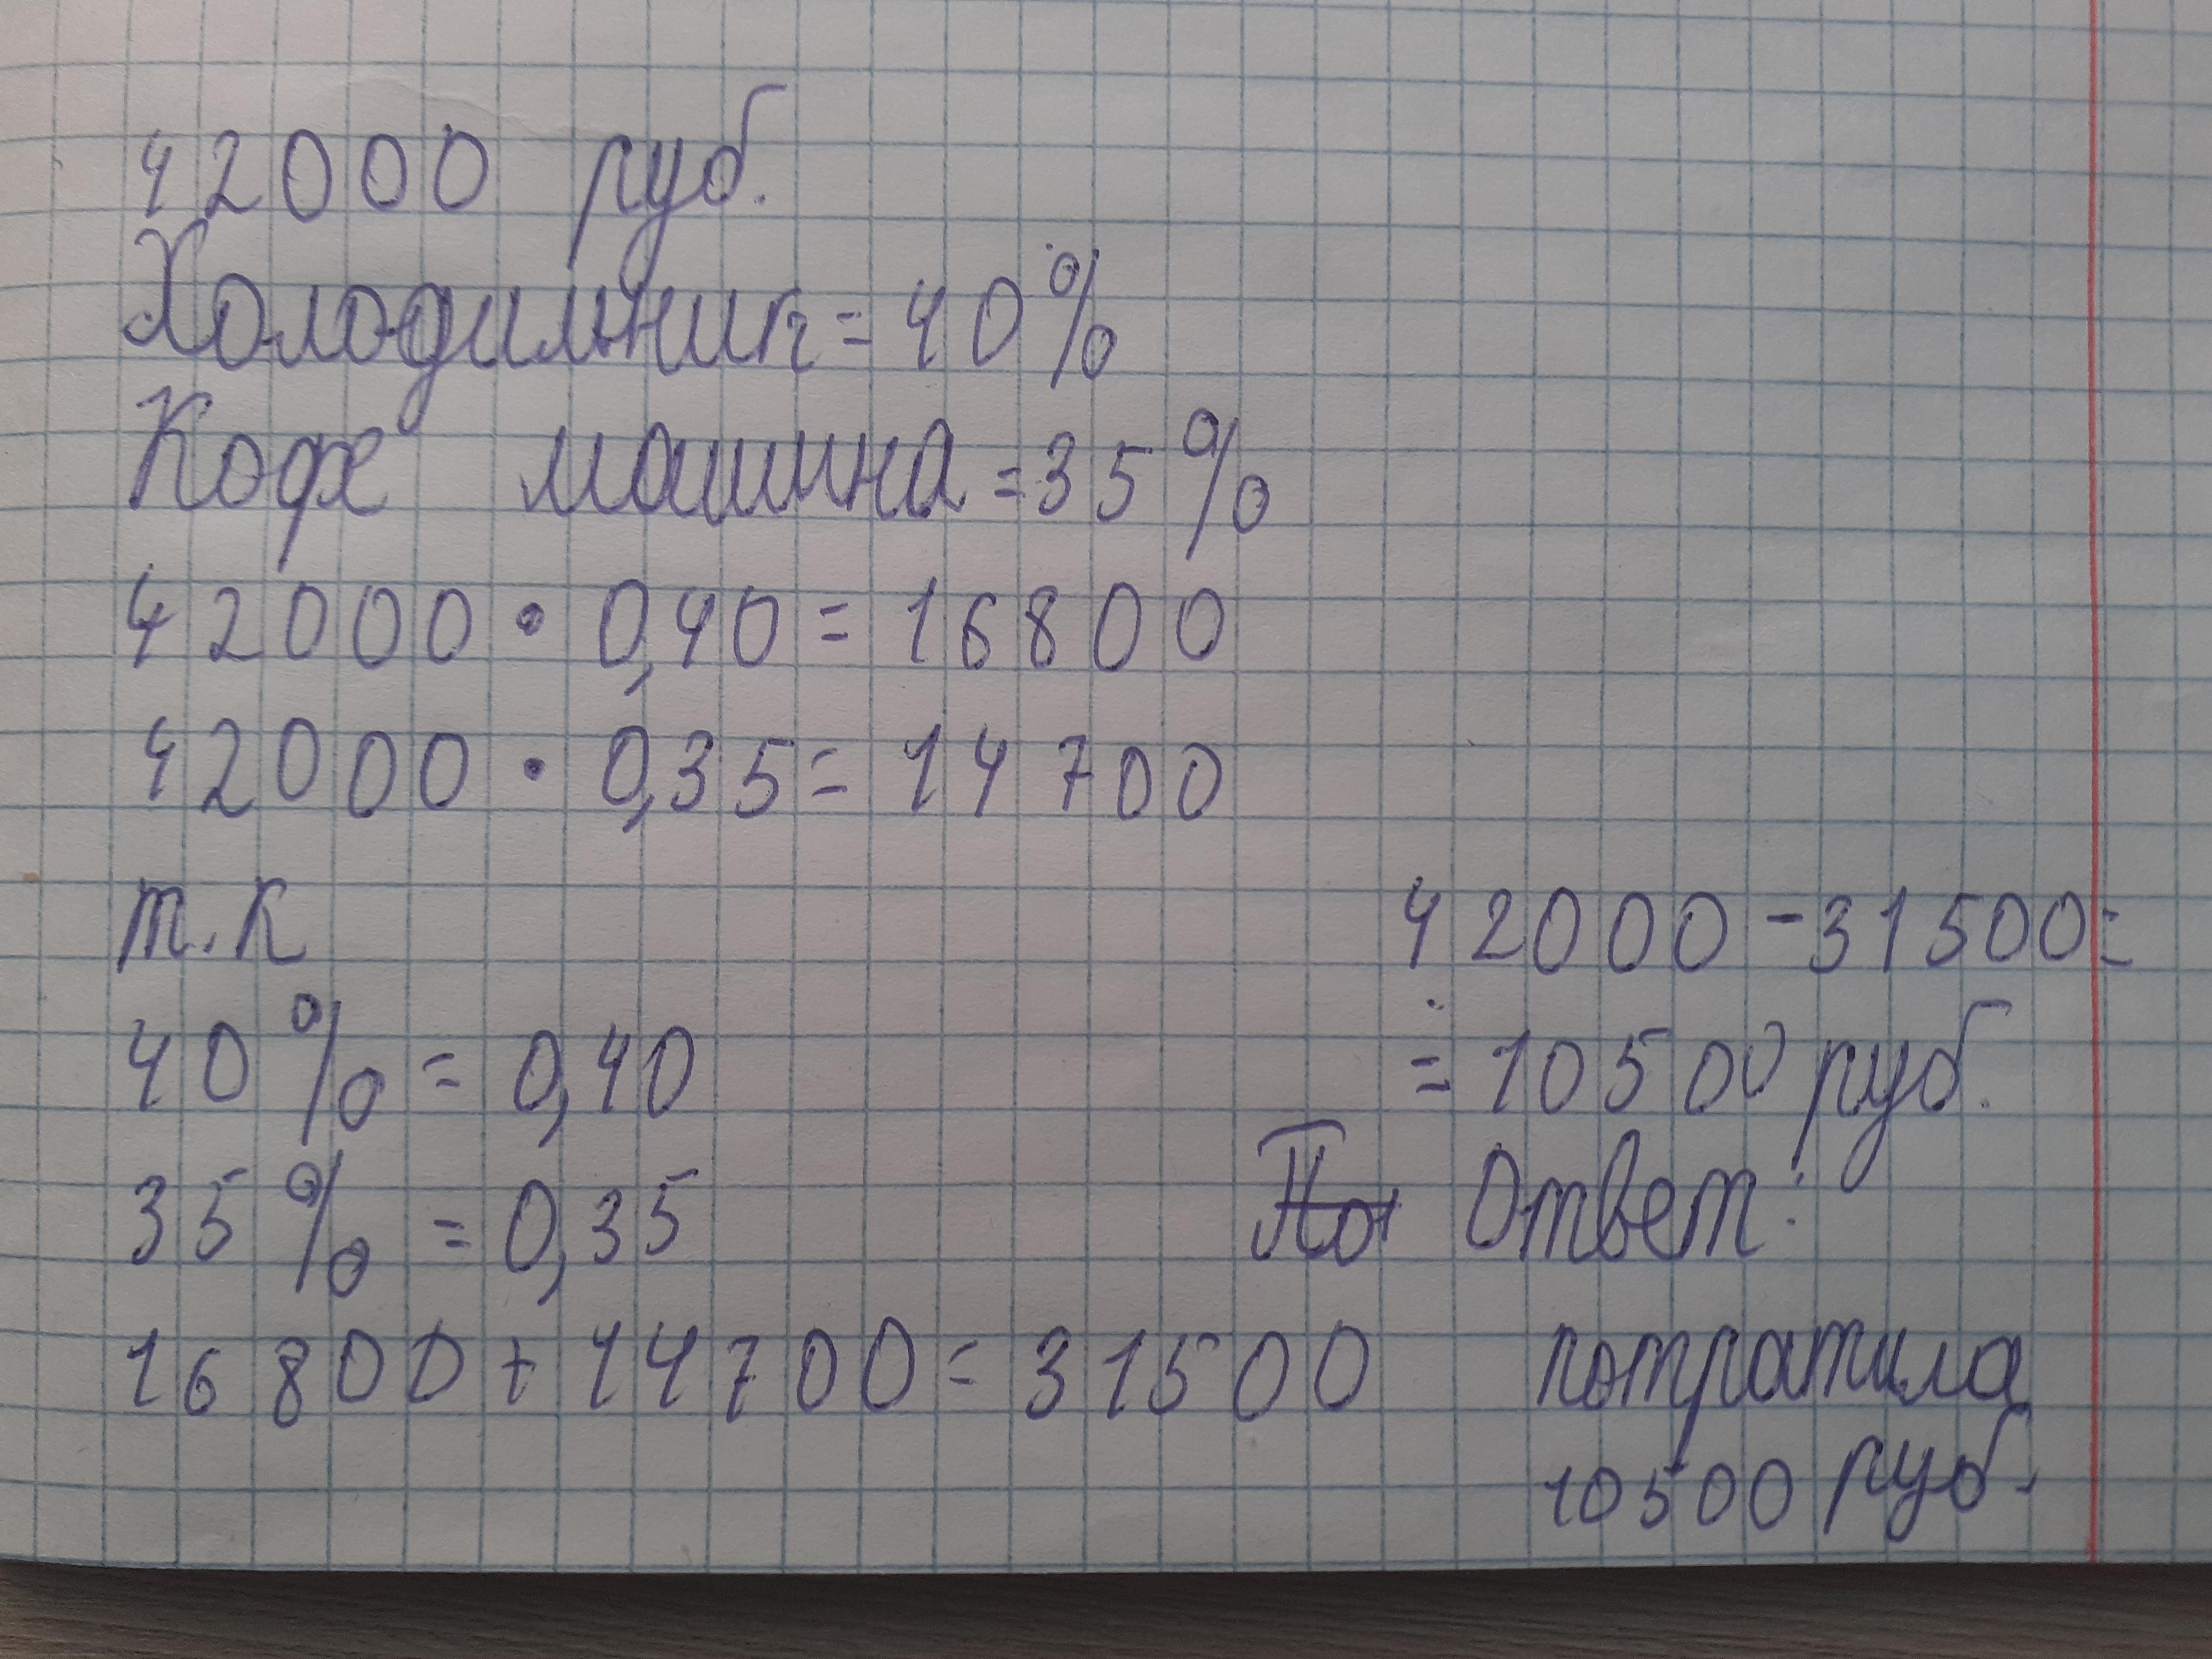 42000 руб.
Холодильник = 40%
Кофе машина = 35%
42000 • 0,40 = 16800
42000 • 0,35 = 14700
т.к
40% = 0,40
35% = 0,35
16800 + 14700 = 31500
42000 - 31500 =
= 10500 руб.
Ответ:
потратила
10500 руб.